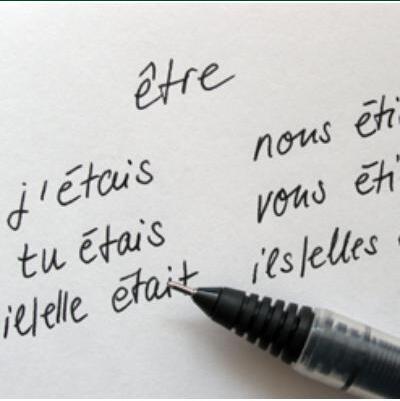 être
j'étais nous éti
tu étais vous éti
il/elle était ils/elles